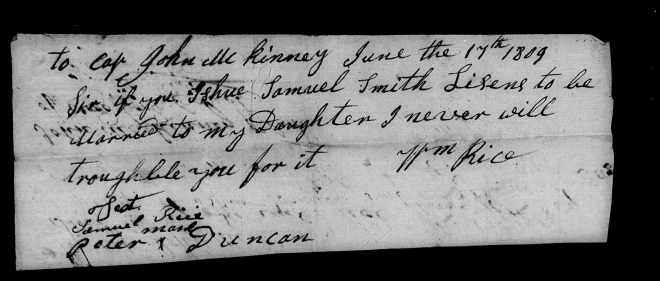 to cap John Mc kinney June the 17th 1809
Sir if you Ishue Samuel Smith Lisens to be
Married to my Daughter I never will
troughble you for it Wm Rice
Test
Samuel Rice
Peter x Duncan
mark